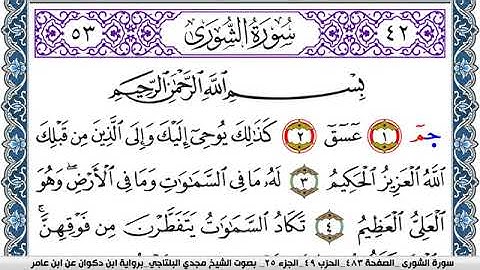 ٤٢ سُورَةُ الشُّورَىٰ ٥٣
بِسْمِ اللَّهِ الرَّحْمَٰنِ الرَّحِيمِ
حمٓ ١ عٓسٓقٓ ٢ كَذَٰلِكَ يُوحِىٓ إِلَيْكَ وَإِلَى الَّذِينَ مِن قَبْلِكَ
اللَّهُ الْعَزِيزُ الْحَكِيمُ ٣ لَهُ مَا فِى السَّمَٰوَٰتِ وَمَا فِى الْأَرْضِ ۖ وَهُوَ
الْعَلِىُّ الْعَظِيمُ ٤ تَكَادُ السَّمَٰوَٰتُ يَتَفَطَّرْنَ مِن فَوْقِهِنَّ ۚ
سورة الشورى_ الصفحة ٤٨٣_ الحزب ٤٩_ الجزء ٢٥_ بصوت الشيخ مجدي البلتاجي_برواية ابن دكوان عن ابن عامر